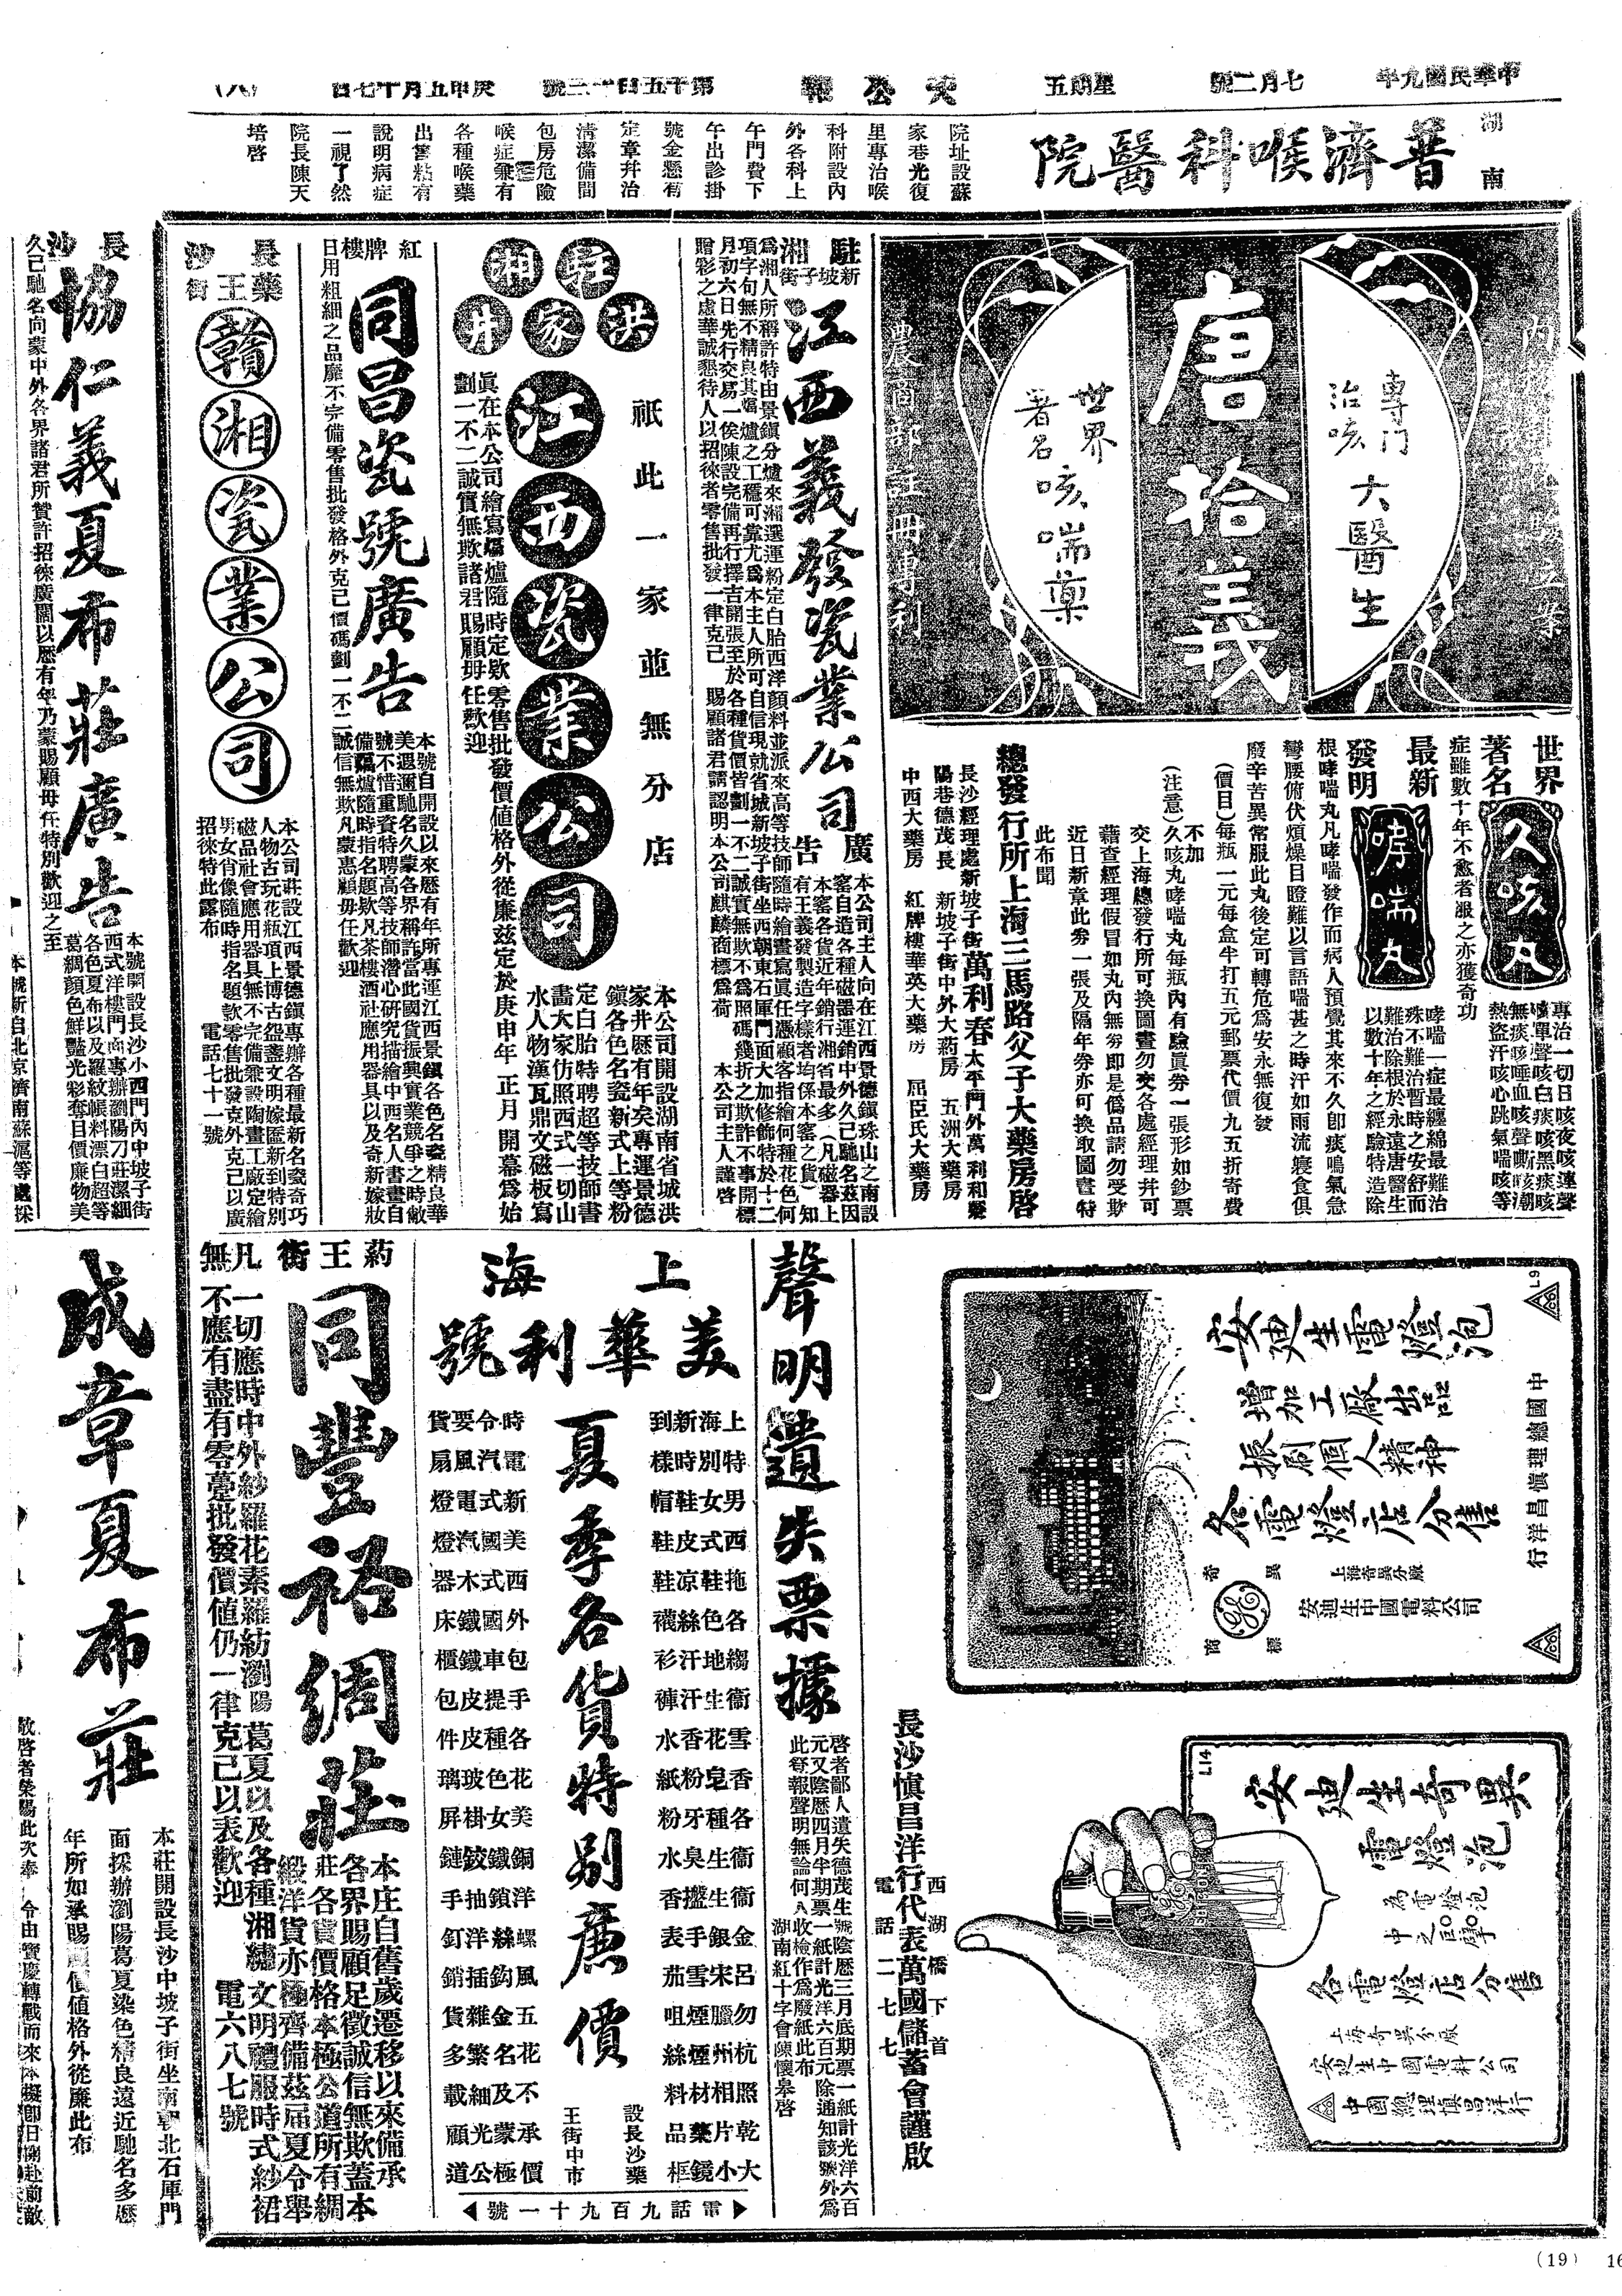 中華民國九年
七月二號
星期五
大公報
第千五百十二號
庚申五月十七日
(八)
湖南
普濟喉科醫院
院址設蘇
家巷光復
里專治喉
科附設內
外各科上
午門費下
午出診掛
號金懸有
定章幷治
清潔備間
包房危險
喉症兼有
各種喉藥
出售粘有
說明病症
一視了然
院長陳天
培啓
唐拾義
專門
治咳
大醫生
世界
著名
咳喘藥
農商部註冊專利
世界
著名
久咳丸
專治一切日咳夜咳連聲
嗽單聲咳白痰咳黑痰咳
無痰咳唾血咳聲嘶咳潮
熱盜汗咳心跳氣喘咳等
症雖數十年不愈者服之亦獲奇功
最新
發明
哮喘丸
哮喘一症最纏綿最難治
殊不難治暫時之安舒而
難治除根於永遠唐醫生
以數十年之經驗特造除
根哮喘丸凡哮喘發作而病人預覺其來不久卽痰鳴氣急
彎腰俯伏煩燥目瞪難以言語喘甚之時汗如雨流寢食俱
廢辛苦異常服此丸後定可轉危爲安永無復發
(價目)每瓶一元每盒半打五元郵票代價九五折寄費
不加
(注意)久咳丸哮喘丸每瓶內有驗眞券一張形如鈔票
交上海總發行所可換圖畫勿交各處經理幷可
藉查經理假冒如丸內無券卽是僞品請勿受欺
近日新章此券一張及隔年券亦可換取圖書特
此布聞
總發行所上海三馬路唐拾義父子大藥房啓
長沙經理處新坡子街萬利春太平門外萬利和
陽巷德茂長 新坡子街中外大葯房 五洲大藥房
中西大藥房 紅牌樓華英大藥房 屈臣氏大藥房
駐湘
新坡子街
江西義發瓷業公司
廣告
本公司主人向在江西景德鎭珠山之南設
窰自造各種磁器運銷中外久已馳名茲因
本窰各貨近年銷行湘省最多(凡磁器上
有王義發製造字樣者均係本窰之貨)知
爲湘人所稱許特由景鎭分爐來湘選運粉定白胎西洋顏料並派來高等技師隨時繪畫寫眞任憑顧客指繪何種花色何
項字句無不精良其爐之工穩可靠尤爲本主人所可自信現就省城新坡子街坐西朝東石庫門面大加修飾特於十二
月初六日先行交易一俟陳設完備再行擇吉開張至於各種貨價皆劃一不二誠實無欺不爲照碼幾折之欺詐不事開標
贈彩之虛華誠懇待人以招徠者零售批發一律克己 賜顧諸君請認明本公司麒麟商標爲荷 本公司主人謹啓
駐湘
洪家井
江西瓷業公司
祇此一家並無分店
本公司開設湖南省城洪
家井歷有年矣專運景德
鎭各色名瓷新式上等粉
定白胎特聘超等技師書
畫大家仿照西式一切山
水人物漢瓦鼎文磁板寫
眞在本公司繪寫爐隨時定欵零售批發價値格外從廉茲定於庚申年正月開幕爲始
劃一不二誠實無欺諸君賜顧毋任歡迎
紅牌樓
同昌瓷號廣告
本號自開設以來歷有年所專運江西景鎭各色名瓷精良華
美遐邇馳名久蒙各界稱許當此國貨振興實業競爭之時敝
號不惜重資特聘高等技師潛心研究描繪中西名人書畫自
備爐隨時指名題欵凡茶樓酒社應用器具以及奇新嫁妝
日用粗細之品靡不完備零售批發格外克己價碼劃一不二誠信無欺凡蒙惠顧毋任歡迎
長沙
藥王街
贛湘瓷業公司
本公司莊設江西景德鎭專辦各種最新名瓷奇巧
人物古玩花瓶頂上博古盌盞文明嫁匲新到特別
磁品社會應用器具無不完備兼設陶畫工廠定繪
男女肖像隨時指名題款零售批發克外克己以廣
招徠特此露布 電話七十一號
長沙
協仁義夏布莊廣告
本號開設長沙小西門內中坡子街
西式洋樓門面專辦瀏陽刀莊潔細
各色夏布以及羅紋帳料漂白超等
葛綢顏色鮮豔光彩奪目價廉物美
久已馳名向蒙中外各界諸君所贊許招徠廣闊以歷有年乃蒙賜顧毋任特別歡迎之至
本號新自北京濟南蘇滬等處採
安迪生電燈泡
增加工廠出品
振刷個人精神
各電燈店分售
奇異
商標
上海奇異分廠
安迪生中國電料公司
中國總理愼昌洋行
L9
安迪生奇異
電燈泡
為電燈泡
中之巨擘
各電燈店分售
上海奇異分廠
安迪生中國電料公司
中國總理愼昌洋行
L14
長沙愼昌洋行代表萬國儲蓄會謹啟
西湖橋下首
電話二七七
聲明遺失票據
啓者鄙人遺失德茂生號陰曆三月底期票一紙計光洋六百
元又陰歷四月半期票一紙計光洋六百元除通知該號外爲
此登報聲明無論何人收檢作爲廢紙此布
湖南紅十字會陳懷皋啓
上海
美華利號
夏季各貨特别廉價
上海新到
特別時樣
男女鞋帽
西式皮鞋
拖鞋凉鞋
各色絲襪
縐地汗衫
衞生汗褲
雪花香水
香皂粉紙
各種牙粉
衞生臭水
衞生盤香
金銀手表
呂宋雪茄
勿臘煙咀
杭州煙絲
照相材料
乾片藥品
大小鏡框
時令要貨
電汽風扇
新式電燈
美國汽燈
西式木器
外國鐵床
包車鐵櫃
手提皮包
各種皮件
花色玻璃
美女掛屏
銅鐵鉸鏈
洋鎖抽手
螺絲洋釘
風鈎插銷
五金雜貨
花名繁多
不及細載
承蒙光顧
價極公道
設長沙藥
王街中市
電話九百九十一號
葯王街
同豐裕綢莊
本庄自舊歲遷移以來備承
各界賜顧足徵誠信無欺蓋本
莊各貨價格本極公道所有綢
緞洋貨亦極齊備茲屆夏令舉
凡一切應時中外紗羅花素羅紡瀏陽葛夏以及各種湘繡文明禮服時式紗裙
無不應有盡有零躉批發價値仍一律克己以表歡迎 電六八七號
成章夏布莊
本莊開設長沙中坡子街坐南朝北石庫門
面採辦瀏陽葛夏染色精良遠近馳名多歷
年所如承賜顧價値格外從廉此布
(19)
16